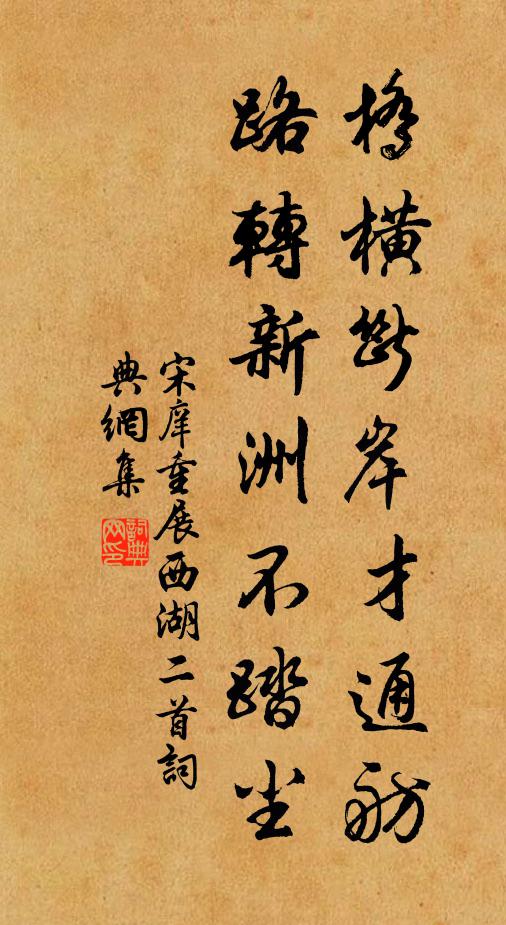 橋橫斷岸才通舫
路轉新洲不踏尘
宋庠重展西湖二首詞
典網集
詞典网印